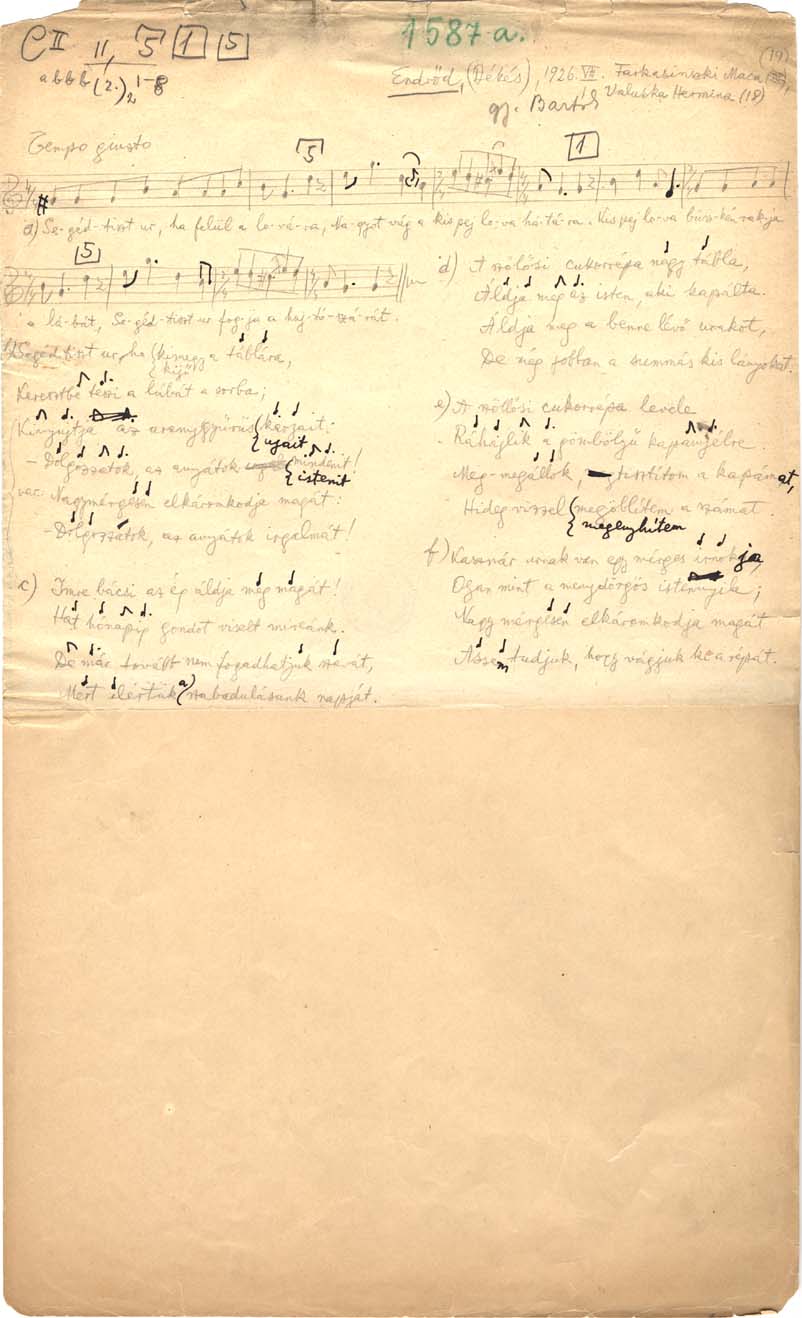 C II 11, 5 1 5
1587 a.
a b b b (2.)2 1-8
Endrőd, (Békés), 1926. VII. Farkasinszki Maca (19),
Valuska Hermina (18)
gy. Bartók
Tempo giusto
5 1
a) Se-géd-tiszt ur, ha felül a lo-vá-ra, Na-gyot vág a kis pej lo-va há-tá-ra. Kis pej lo-va büsz-kén rak-ja
5
a lá-bát, Se-géd-tiszt ur fog-ja a haj-tó-szá-rát.
b) Segédtiszt ur, ha {kimegy a táblára,
{kijő
Keresztbe teszi a lábát a sorba;
Kinyujtja az aranygyűrűs {karjait:
{ujait
- Dolgozzatok, az anyátok mindenit!
{istenit
vac. Nagymérgesen elkáromkodja magát:
- Dolgozzatok, az anyátok irgalmát!
c) Imre bácsi az ép áldja meg magát!
Hat hónapig gondot viselt mireánk.
De már tovább nem fogadhatjuk szavát,
Mert elértük a) szabadulásunk napját.
d) A szőlősi cukorrépa nagy tábla,
Áldja meg az isten, aki kapálta.
Áldja meg a benne lévő urakot,
De még jobban a summás kis lányokat.
e) A szőllősi cukorrépa levele
Ráhajlik a gömbölyű kapanyélre
Meg-megállok, tisztítom a kapámat,
Hideg vizzel {megöblítem a számat.
{megenyhítem
f) Kasznár urnak van egy mérges írnokja,
Ojan mint a menydörgős istennyila;
Nagy mérgesen elkáromkodja magát
Assem tudjuk, hogy vágjuk ki a répát.